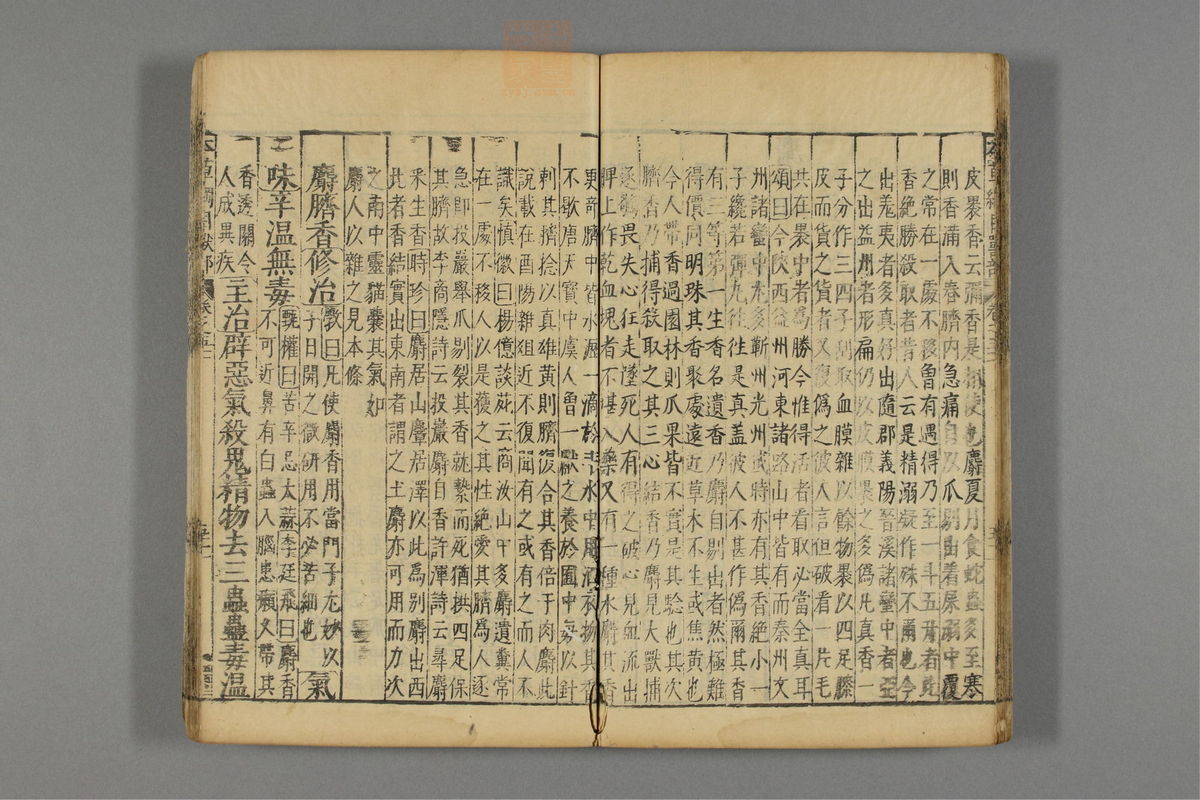 皮裹香云彌香是
麝夏月食蛇蟲多至寒
則香滿入春臍內急痛自以爪剔出着屎溺中覆
之常在一處不移曾有遇得乃至一斗五升者此
香絶勝殺取者昔人云是精溺凝作殊不爾也今
出羗夷者多真好出隨郡義陽晉溪諸蠻中者亞
之出益州者形扁仍以皮膜裹之多偽凡真香一
子分作三四子刮取血膜雜以餘物裹以四足膝
皮而貨之貨者又復偽之彼人言但破看一片毛
共在裹中者爲勝今惟得活者看取必當全真耳
頌曰今陝西益州河東諸路山中皆有而秦州文
州諸蠻中尤多蘄州光州或時亦有其香絶小一
子纔若彈丸往往是真蓋彼人不甚作僞爾其香
有三等第一生香名遺香乃麝自剔出者然極難
得價同明珠其香聚處遠近草木不生或焦黃也
今人帶香過園林則瓜果皆不實是其驗也其次
臍香乃捕得殺取之其三心結香乃麝見大獸捕
逐驚畏失心狂走墜死人有得之破心見血流出
脾上作乾血塊者不堪入藥又有一種水麝其香
更奇臍中皆水瀝一滴於斗水中用洒衣物其香
不歇唐天寶中虞人曾一獻之養於囿中每以針
刺其臍捻以真雄黃則臍復合其香倍于肉麝此
說載在酉陽雜俎近不復聞有之或有之而人不
識矣慎微曰楊億談苑云商汝山中多麝遺糞常
在一處不移人以是獲之其性絶愛其臍爲人逐
急卽投巖舉爪剔裂其香就縶而死猶拱四足保
其臍故李商隱詩云投巖麝自香許渾詩云尋麝
采生香時珍曰麝居山麞居澤以此爲别麝出西
北者香結實出東南者謂之土麝亦可用而力次
之南中靈貓囊其氣如
麝人以雜之見本條
麝臍香修治斆曰凡使麝香用當門子尤妙以
子日開之微研用不必苦細也氣
味辛温無毒甄權曰苦辛忌大蒜李廷飛曰麝香
不可近鼻有白蟲入腦患癩久帶其
香透關令
人成異疾主治辟惡氣殺鬼精物去三蟲蠱毒温
本草綱目獸部